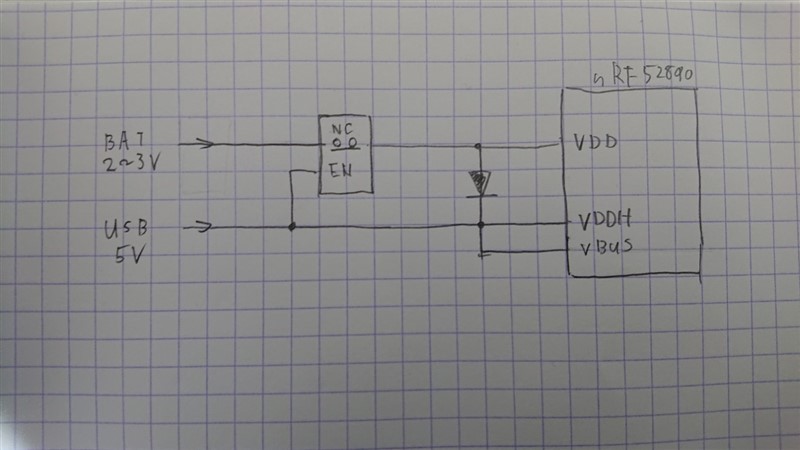 nRF52840
BAT
2~3V
NC
EN
VDD
USB
5V
VDDH
VBUS